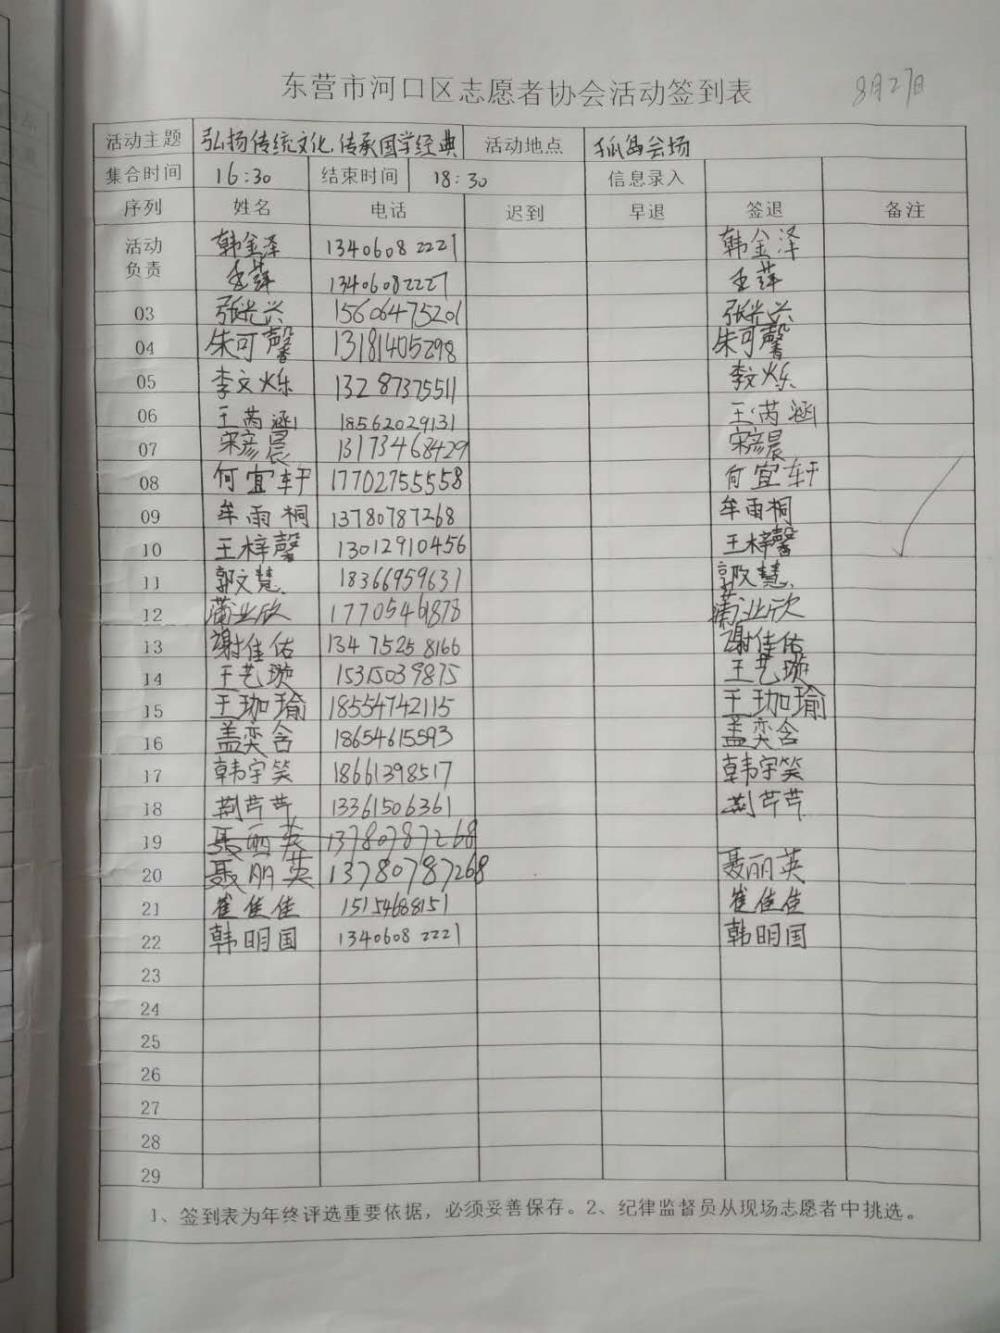 东营市河口区志愿者协会活动签到表 8月27日
活动主题 弘扬传统文化,传承国学经典 活动地点 孤岛会场
集合时间 16:30 结束时间 18:30 信息录入
序列 姓名 电话 迟到 早退 签退 备注
活动负责 韩金泽 13406082221 韩金泽
13406082227
03 张光兴 15606475201 张光兴
04 朱可馨 13181405298 朱可馨
05 李文烁 13287375511 李文烁
06 王芮涵 18562029131 王芮涵
07 宋彦晨 13173468429 宋彦晨
08 何宜轩 17702755558 何宜轩
09 牟雨桐 13780787268 牟雨桐
10 王梓馨 13012910456 王梓馨
11 郭文慧 18366959631 郭文慧
12 17705461878
13 谢佳佑 13475258166 谢佳佑
14 王艺璇 15315039875 王艺璇
15 王珈瑜 18554742115 王珈瑜
16 盖奕含 18654615593 盖奕含
17 韩宇笑 18661398517 韩宇笑
18 荆芹芹 13361506361 荆芹芹
19 聂丽英 13780787268
20 聂丽英 13780787268 聂丽英
21 崔佳佳 15154688151 崔佳佳
22 韩明国 13406082221 韩明国
23
24
25
26
27
28
29
1、签到表为年终评选重要依据，必须妥善保存。2、纪律监督员从现场志愿者中挑选。